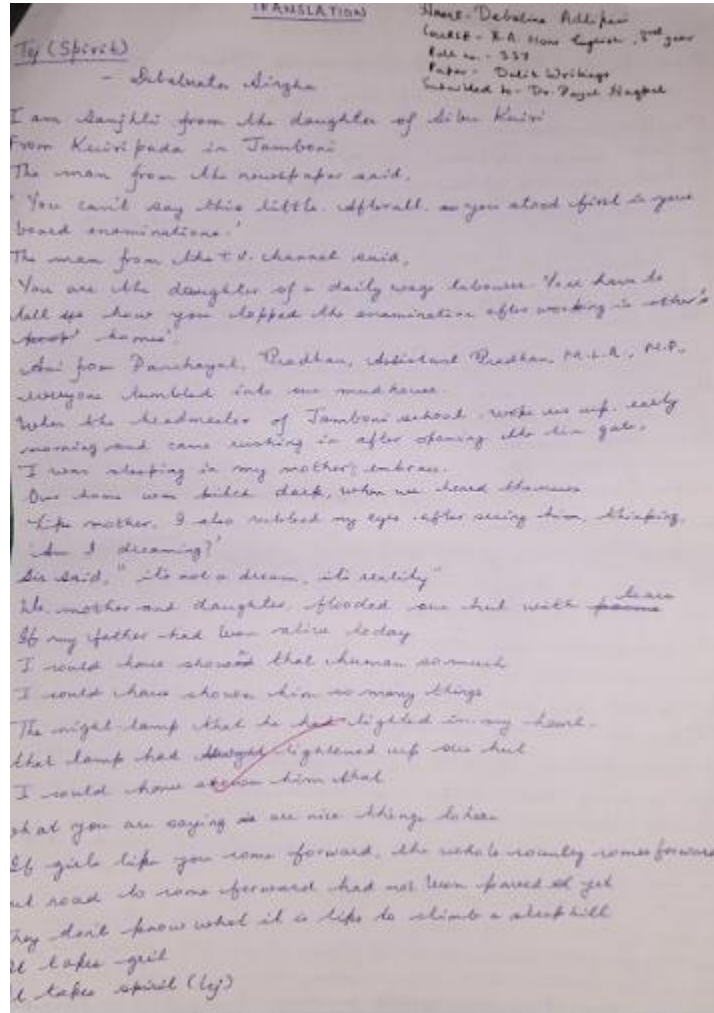 TRANSLATION
Name - Debalina Adhikari
Course - B.A. Hons English, 3rd year
Roll no. - 337
Paper - Dalit Writings
Submitted to - Dr. Payal Nagpal
Tej (Spirit)
- Debabrata Singha
I am Sanjhli from the daughter of Sibu Kuiri
From Kuiripada in Jamboni
The man from the newspaper said,
'You can't say this little. Afterall, as you stood first in your
board examinations.'
The man from the t.v. channel said,
'You are the daughter of a daily wage labourer. You have to
tell us how you topped the examination after working in other's
homes'.
from Panchayat, Pradhan, Assistant Pradhan, M.L.A., M.P.,
everyone tumbled into our mudhouse.
When the headmaster of Jamboni school woke us up early
morning and came rushing in after opening the tin gate.
I was sleeping in my mother's embrace.
Our home was pitch dark, when we
Like mother, I also rubbed my eyes after seeing him, thinking,
'Am I dreaming?'
Sir said, "it's not a dream, it's reality"
We, mother and daughter, flooded our hut with tears
If my father had been alive today
I would have showed that human so much
I could have shown him so many things
The night lamp that he had lighted in my heart,
that lamp had lightened up our hut
I could have shown him that
What you are saying are nice things to hear
If girls like you come forward, the whole country comes forward
but road to come forward had not been paved yet
They don't know what it is like to climb a steep hill
It takes grit
It takes spirit (tej)